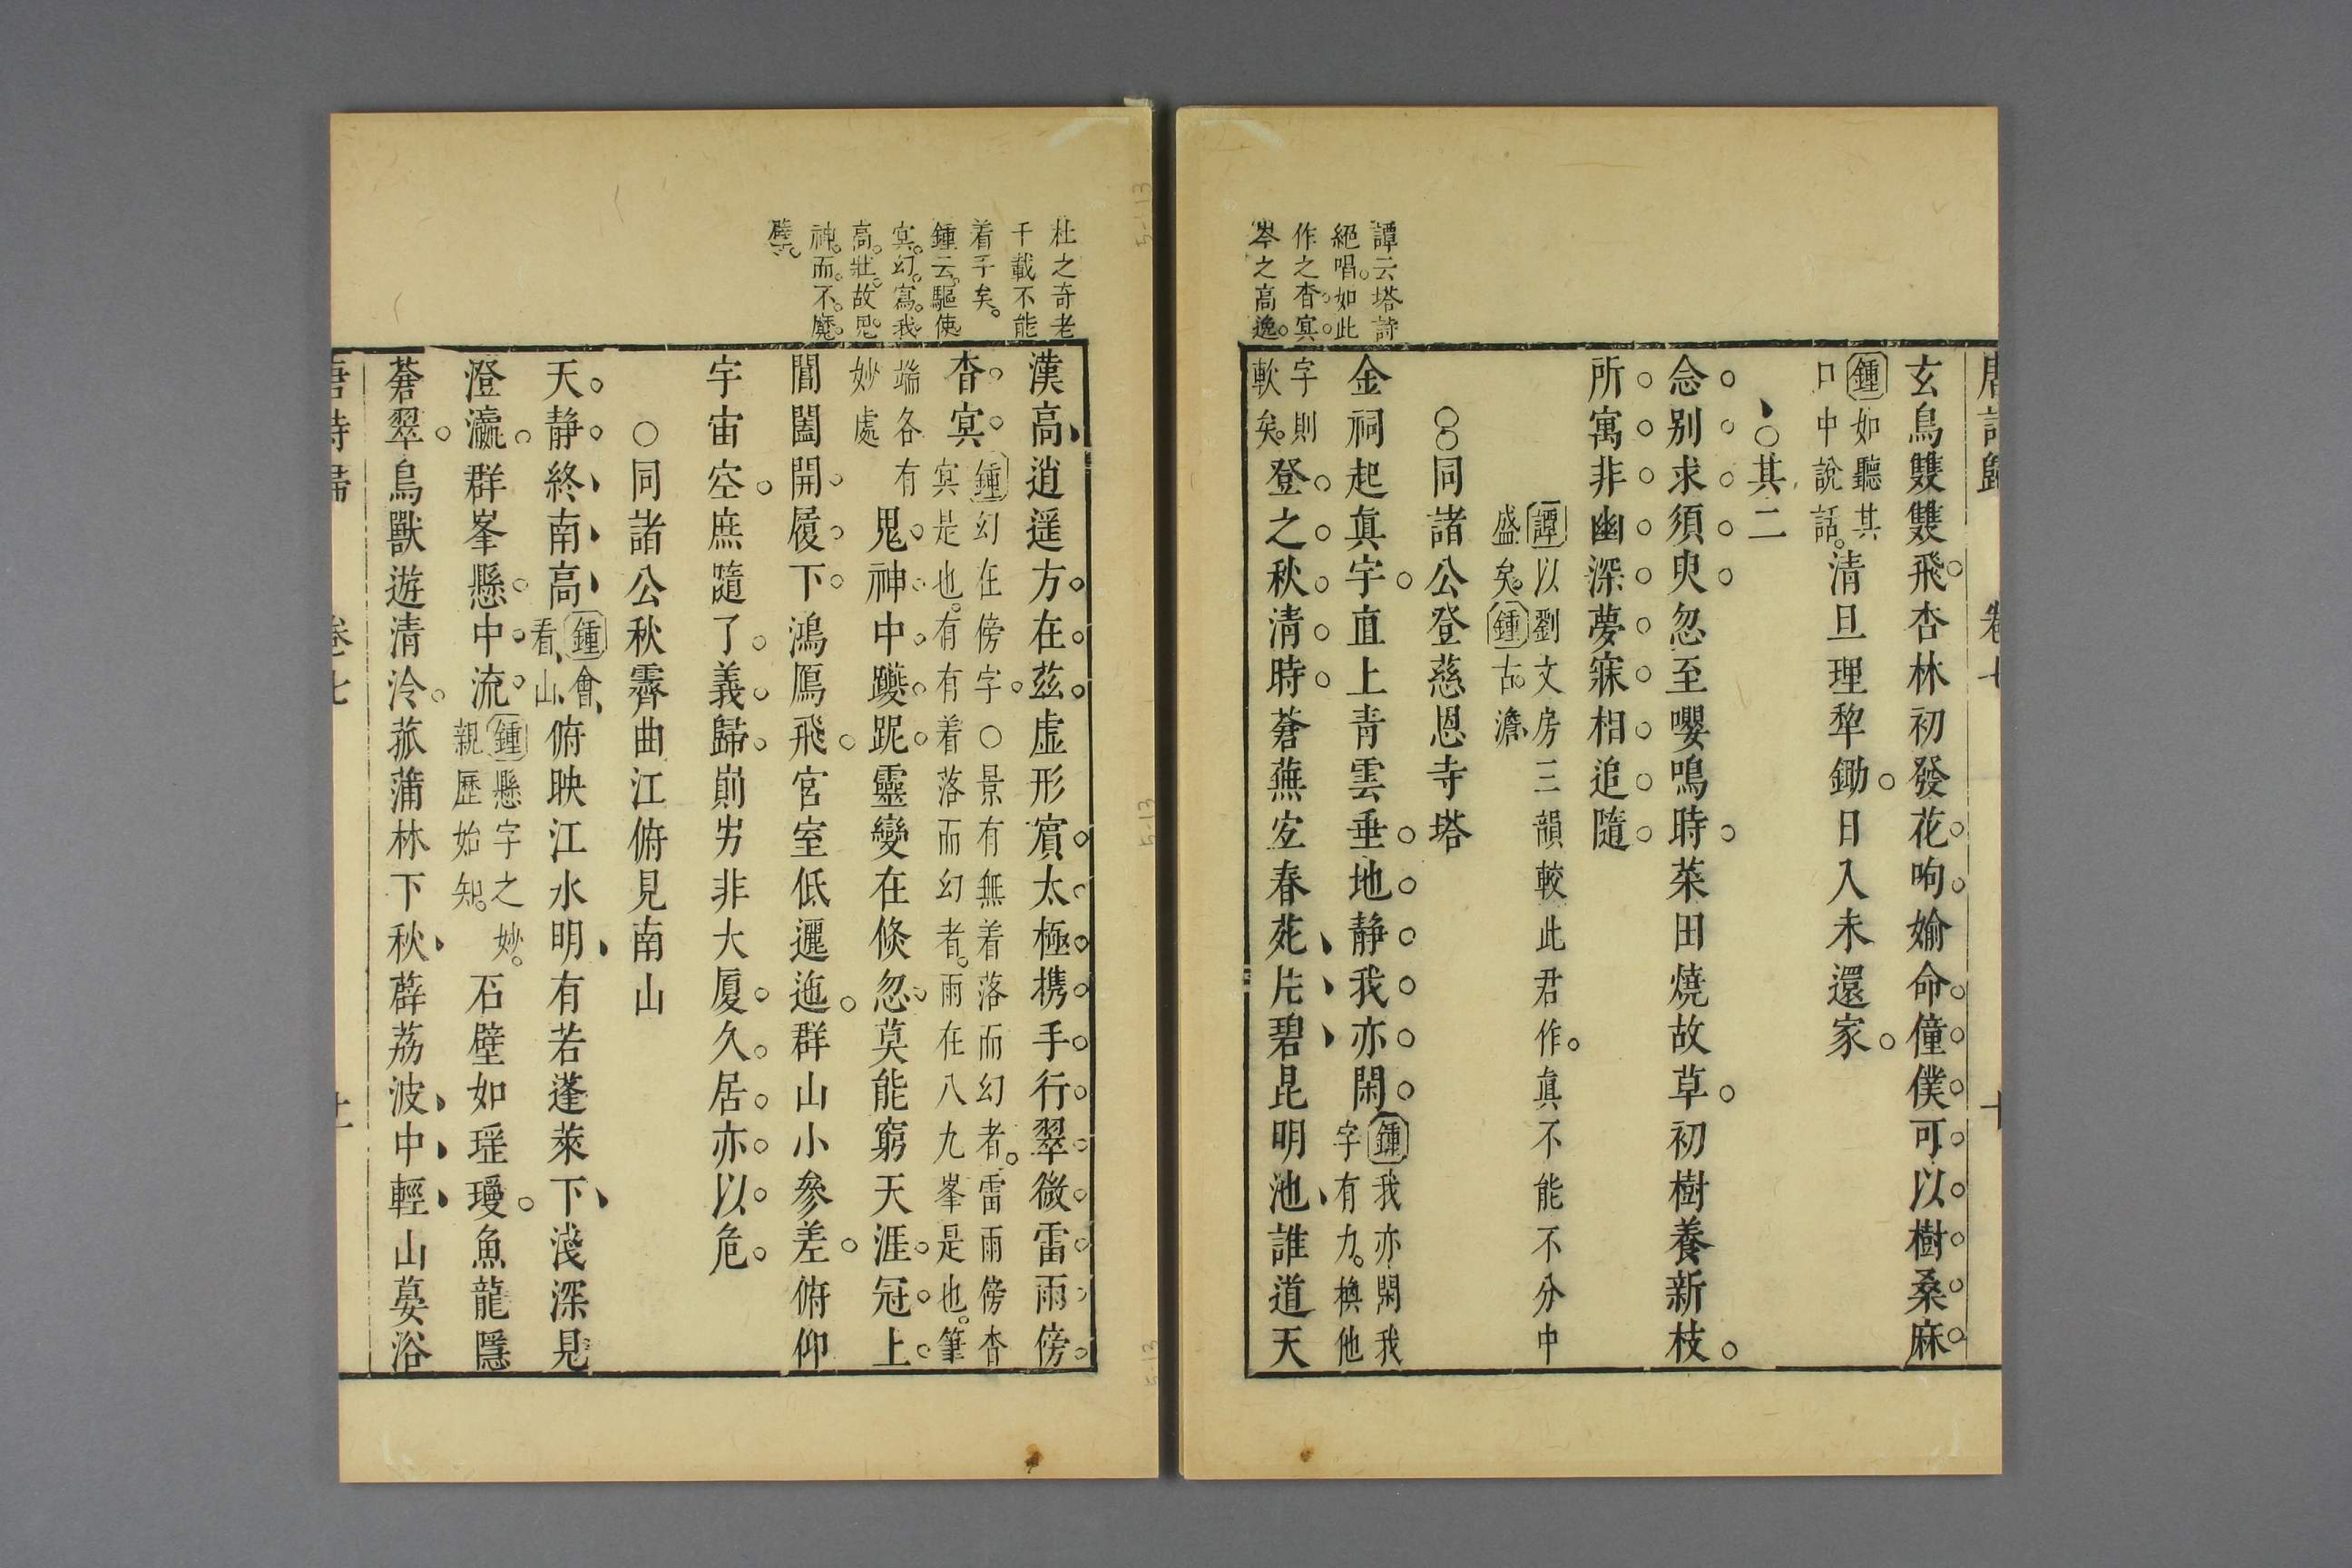 譚云塔詩
絕唱如此
作之杳冥
岑之高逸
唐詩歸 卷七 十
玄鳥雙雙飛杏林初發花呴媮命僮僕可以樹桑麻
鍾如聽其
口中說話
清旦理犂鋤日入未還家
其二
念別求須臾忽至嚶鳴時菜田燒故草初樹養新枝
所寓非幽深夢寐相追隨
譚以劉文房三韻較此君作真不能不分中
盛矣鍾古澹
同諸公登慈恩寺塔
金祠起真宇直上青雲垂地靜我亦閑
鍾我亦閑我
字有力換他
字則
軟矣
登之秋清時蒼蕪宜春苑片碧昆明池誰道天
杜之奇老
千載不能
着手矣
鍾云驅使
冥幻寫我
高壯故鬼
神而不魔
漢高逍遥方在茲虛形賔太極携手行翠微雷雨傍
杳冥
鍾幻在傍字○景有無着落而幻者雷雨傍杳
冥是也有有着落而幻者雨在八九峯是也筆
端各有
妙處
鬼神中躨跜靈變在倏忽莫能窮天涯冠上
閶闔開履下鴻鴈飛宮室低邐迤群山小參差俯仰
宇宙空庶隨了義歸崱屴非大厦久居亦以危
○同諸公秋霽曲江俯見南山
天靜終南高
鍾會
看山
俯映江水明有若蓬萊下淺深見
澄瀛群峯懸中流
鍾懸字之妙
親歷始知
石壁如瑶瓊魚龍隱
蒼翠鳥獸遊清泠菰蒲林下秋薜荔波中輕山䓘浴
唐詩歸 卷七 十一